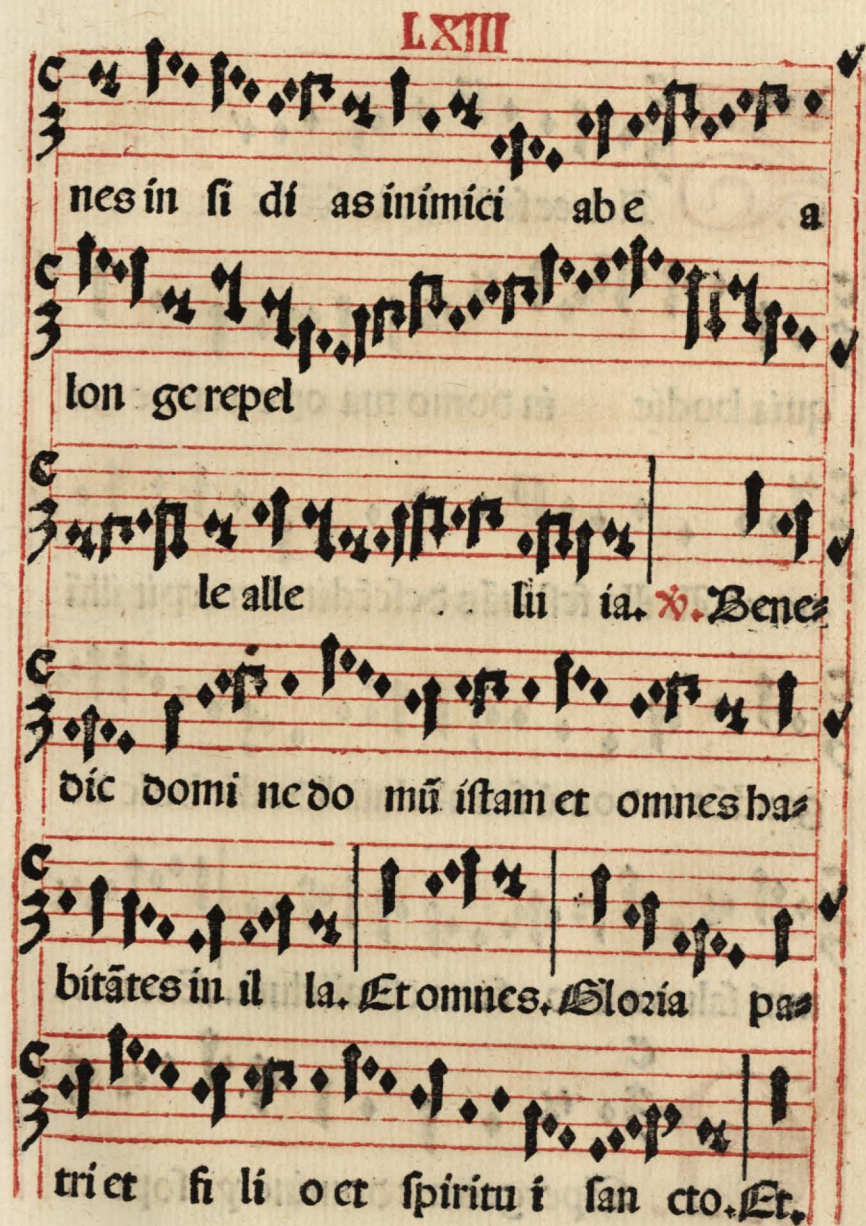 LXIII
nes in si di as inimici ab e a
lon ge repel
le alle lu ia. ℣. Bene⸗
dic domi ne do mū istam et omnes ha⸗
bitātes in il la. Et omnes. Gloria pa⸗
tri et fi li o et spiritu i san cto. Et.